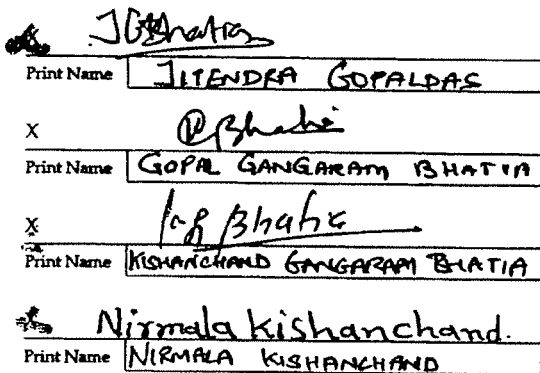 X JGBhatia
Print Name JITENDRA GOPALDAS
X Bhatia
Print Name GOPAL GANGARAM BHATIA
X Bhatia
Print Name KISHANCHAND GANGARAM BHATIA
Nirmala Kishanchand.
Print Name NIRMALA KISHANCHAND